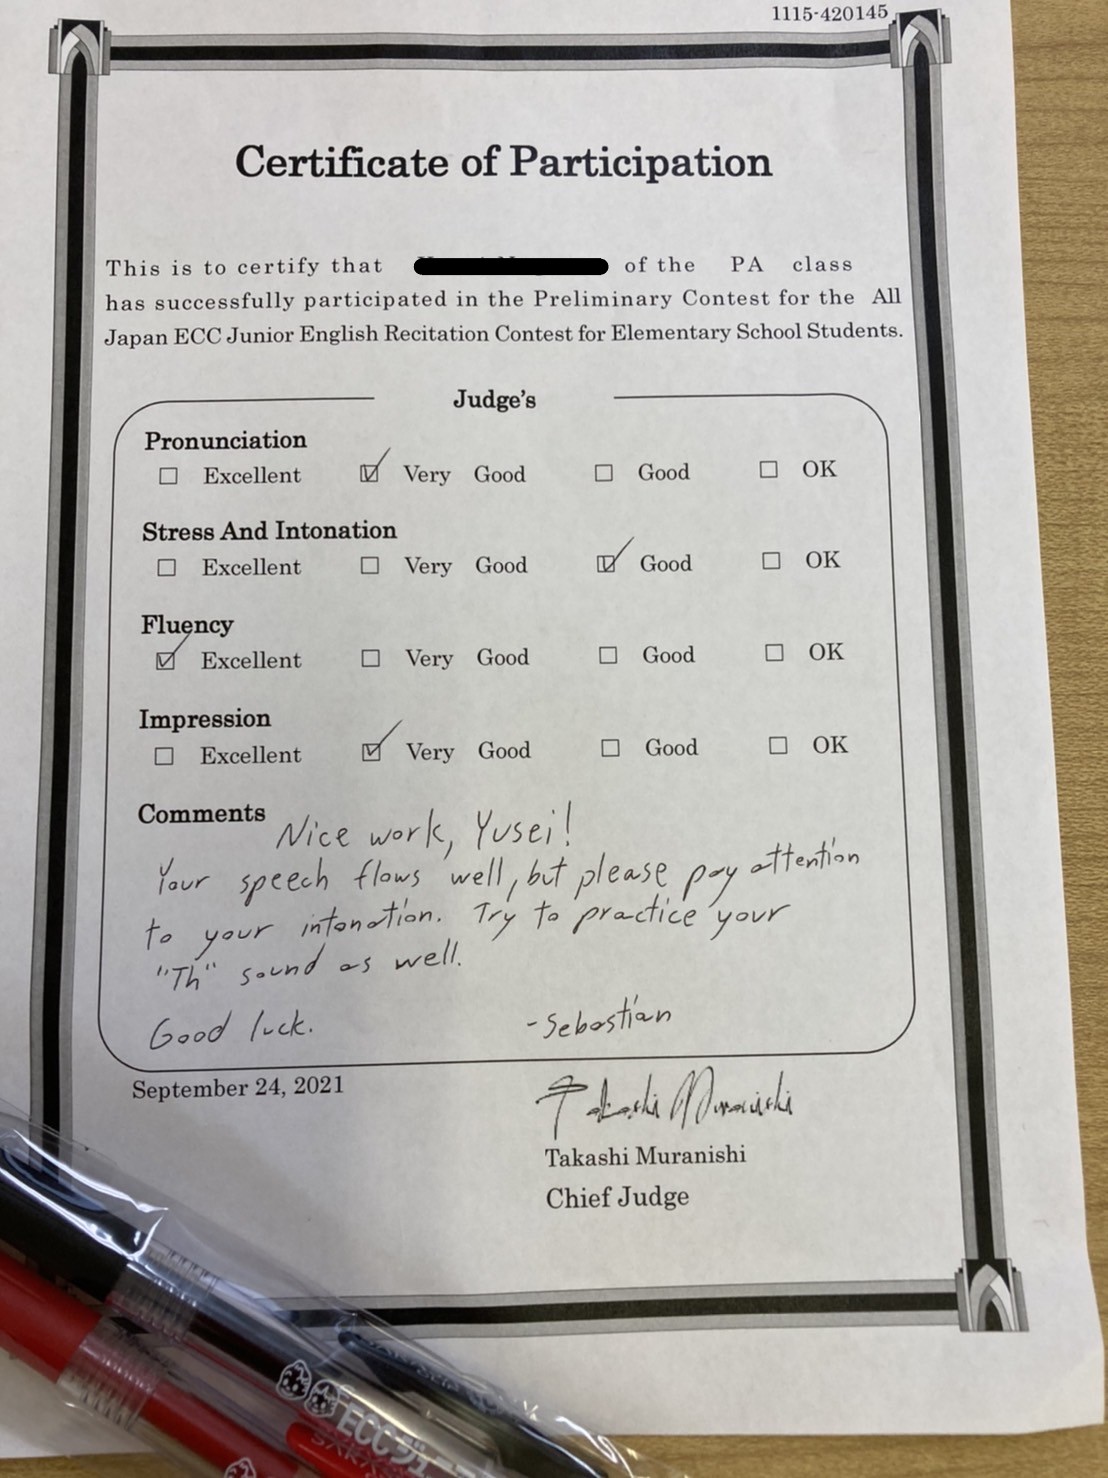 1115-420145
Certificate of Participation
This is to certify that of the PA class
has successfully participated in the Preliminary Contest for the All
Japan ECC Junior English Recitation Contest for Elementary School Students.
Judge's
Pronunciation
☐ Excellent ☑ Very Good ☐ Good ☐ OK
Stress And Intonation
☐ Excellent ☐ Very Good ☑ Good ☐ OK
Fluency
☑ Excellent ☐ Very Good ☐ Good ☐ OK
Impression
☐ Excellent ☑ Very Good ☐ Good ☐ OK
Comments Nice work, Yusei!
Your speech flows well, but please pay attention
to your intonation. Try to practice your
"Th" sound as well.
Good luck. -Sebastian
September 24, 2021
Takashi Muranishi
Takashi Muranishi
Chief Judge
ECCジュ